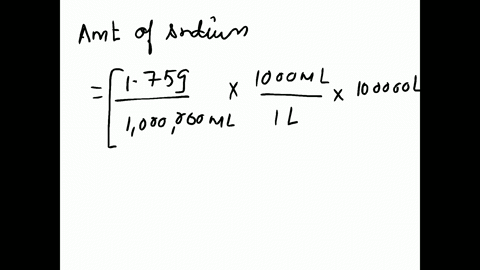 Amt of sodium
= [ 1.75g / 1,000,000 mL × 1000 mL / 1 L × 100000L